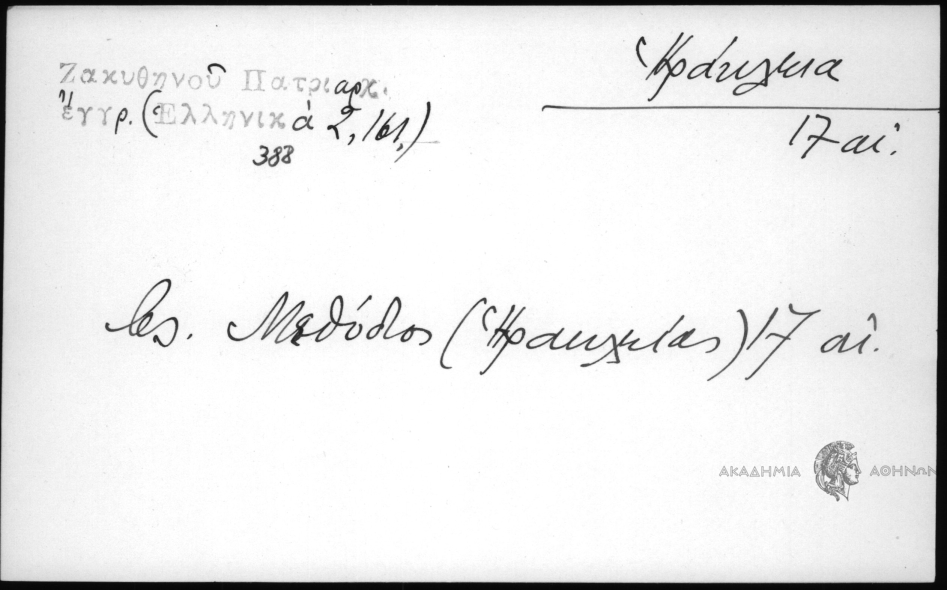 Ζακυθηνοῦ Πατριαρχ.
ἔγγρ. (Ἑλληνικά 2, 161,)
388
Ἡράκλεια
17 αἰ.
Μεθόδιος (Ἡρακλείας) 17 αἰ.
ΑΚΑΔΗΜΙΑ ΑΘΗΝΩΝ